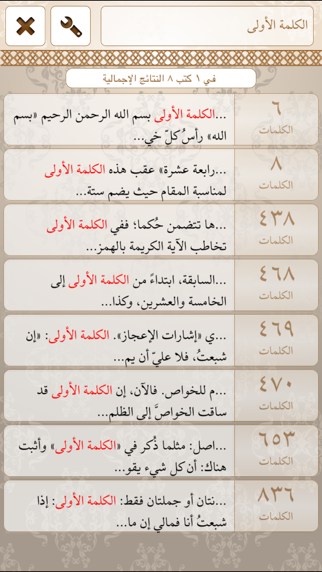 الكلمة الأولى
في ١ كتب ٨ النتائج الإجمالية
...الكلمة الأولى بسم الله الرحمن الرحيم «بسم
الله» رأسُ كلّ خي...
٦
الكلمات
...رابعة عشرة» عقب هذه الكلمة الأولى
لمناسبة المقام حيث يضم ستة...
٨
الكلمات
...ها تتضمن حُكما؛ ففي الكلمة الأولى
تخاطب الآية الكريمة بالهمز...
٤٣٨
الكلمات
...السابقة، ابتداءً من الكلمة الأولى إلى
الخامسة والعشرين، وكذا...
٤٦٨
الكلمات
...ي «إشارات الإعجاز». الكلمة الأولى: «إن
شبعتُ، فلا عليّ أن يم...
٤٦٩
الكلمات
...م للخواص. فالآن، إن الكلمة الأولى قد
ساقت الخواصَّ إلى الظلم...
٤٧٠
الكلمات
...اصل: مثلما ذُكر في «الكلمة الأولى» وأثبت
هناك: أن كل شيء يقو...
٦٥٣
الكلمات
...نتان أو جملتان فقط: الكلمة الأولى: إذا
شبعتُ أنا فمالي إن ما...
٨٣٦
الكلمات